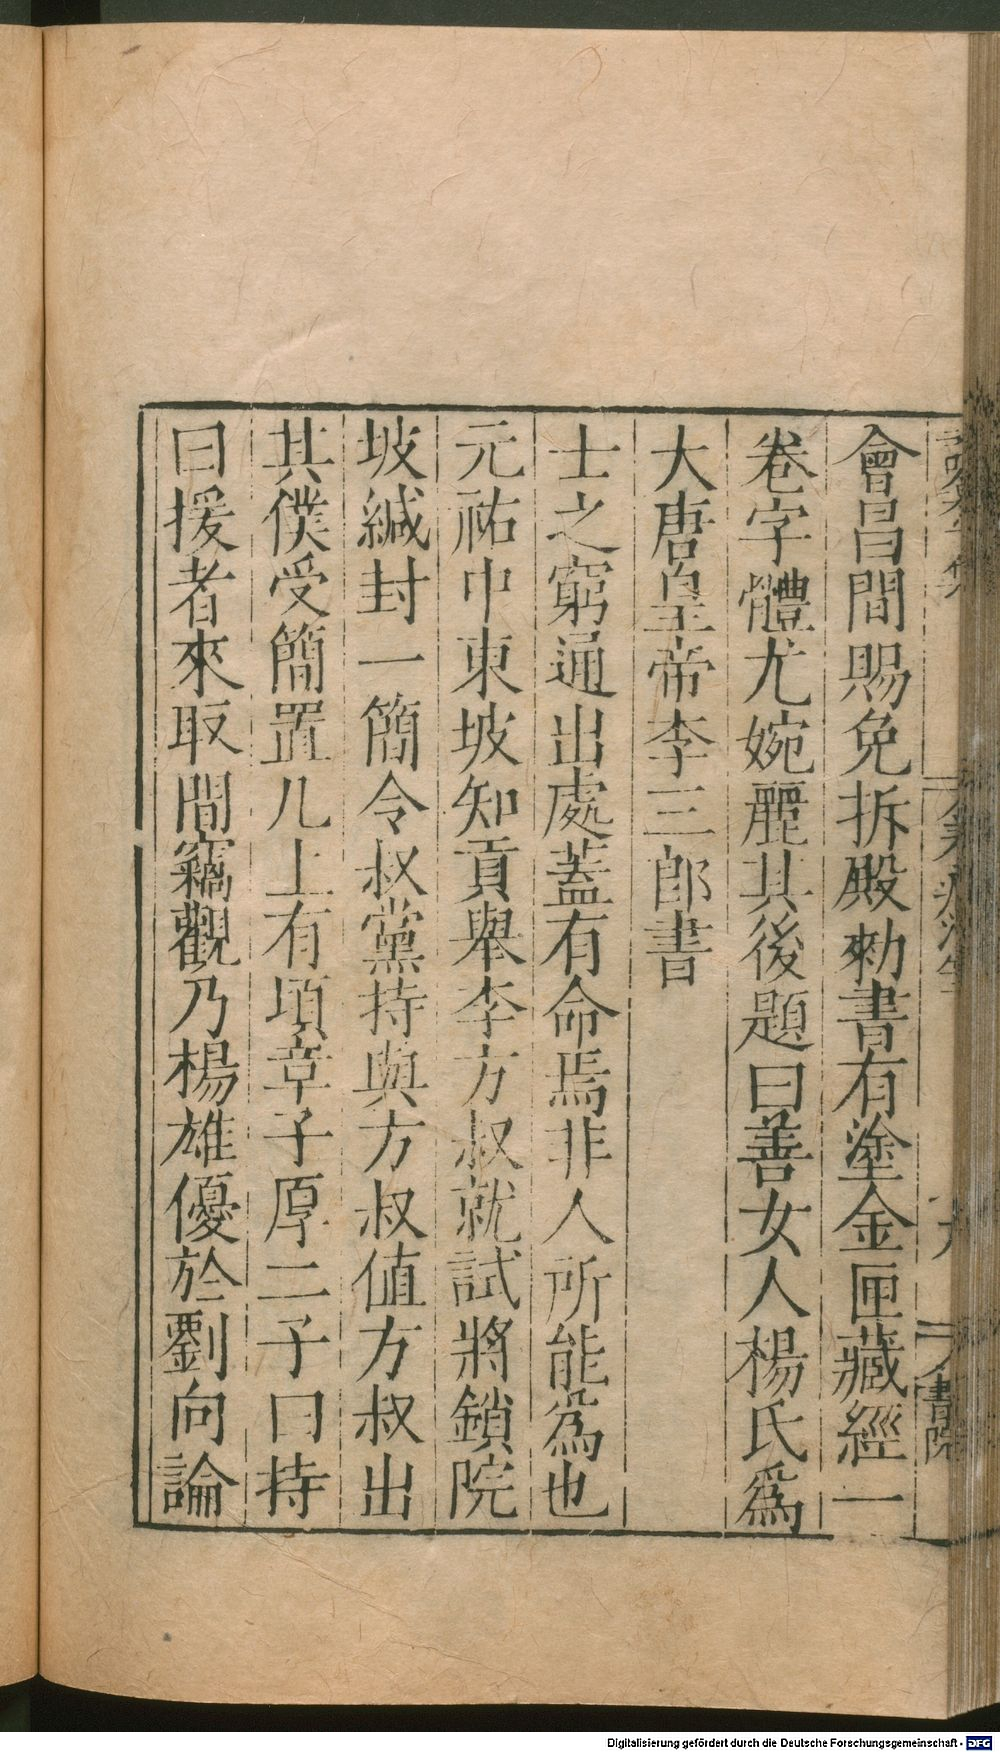 會昌間賜免拆殿勑書有塗金匣藏經一
卷字體尤婉麗其後題曰善女人楊氏爲
大唐皇帝李三郎書
士之窮通出處蓋有命焉非人所能爲也
元祐中東坡知貢舉李方叔就試將鎖院
坡緘封一簡令叔黨持與方叔值方叔出
其僕受簡置几上有頃章子厚二子曰持
曰援者來取間竊觀乃楊雄優於劉向論
書院
Digitalisierung gefördert durch die Deutsche Forschungsgemeinschaft - DFG